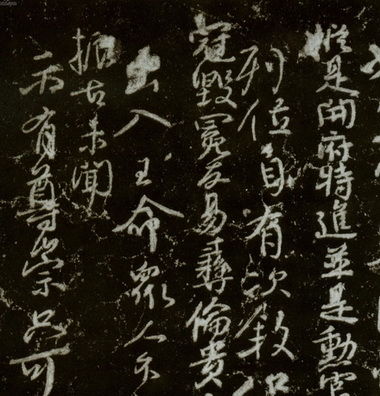 從是開府特進並是勳官
列位自有次敘
冠毀冕反易彝倫貴
出入王命眾人不
振古未聞
示有尊崇只可